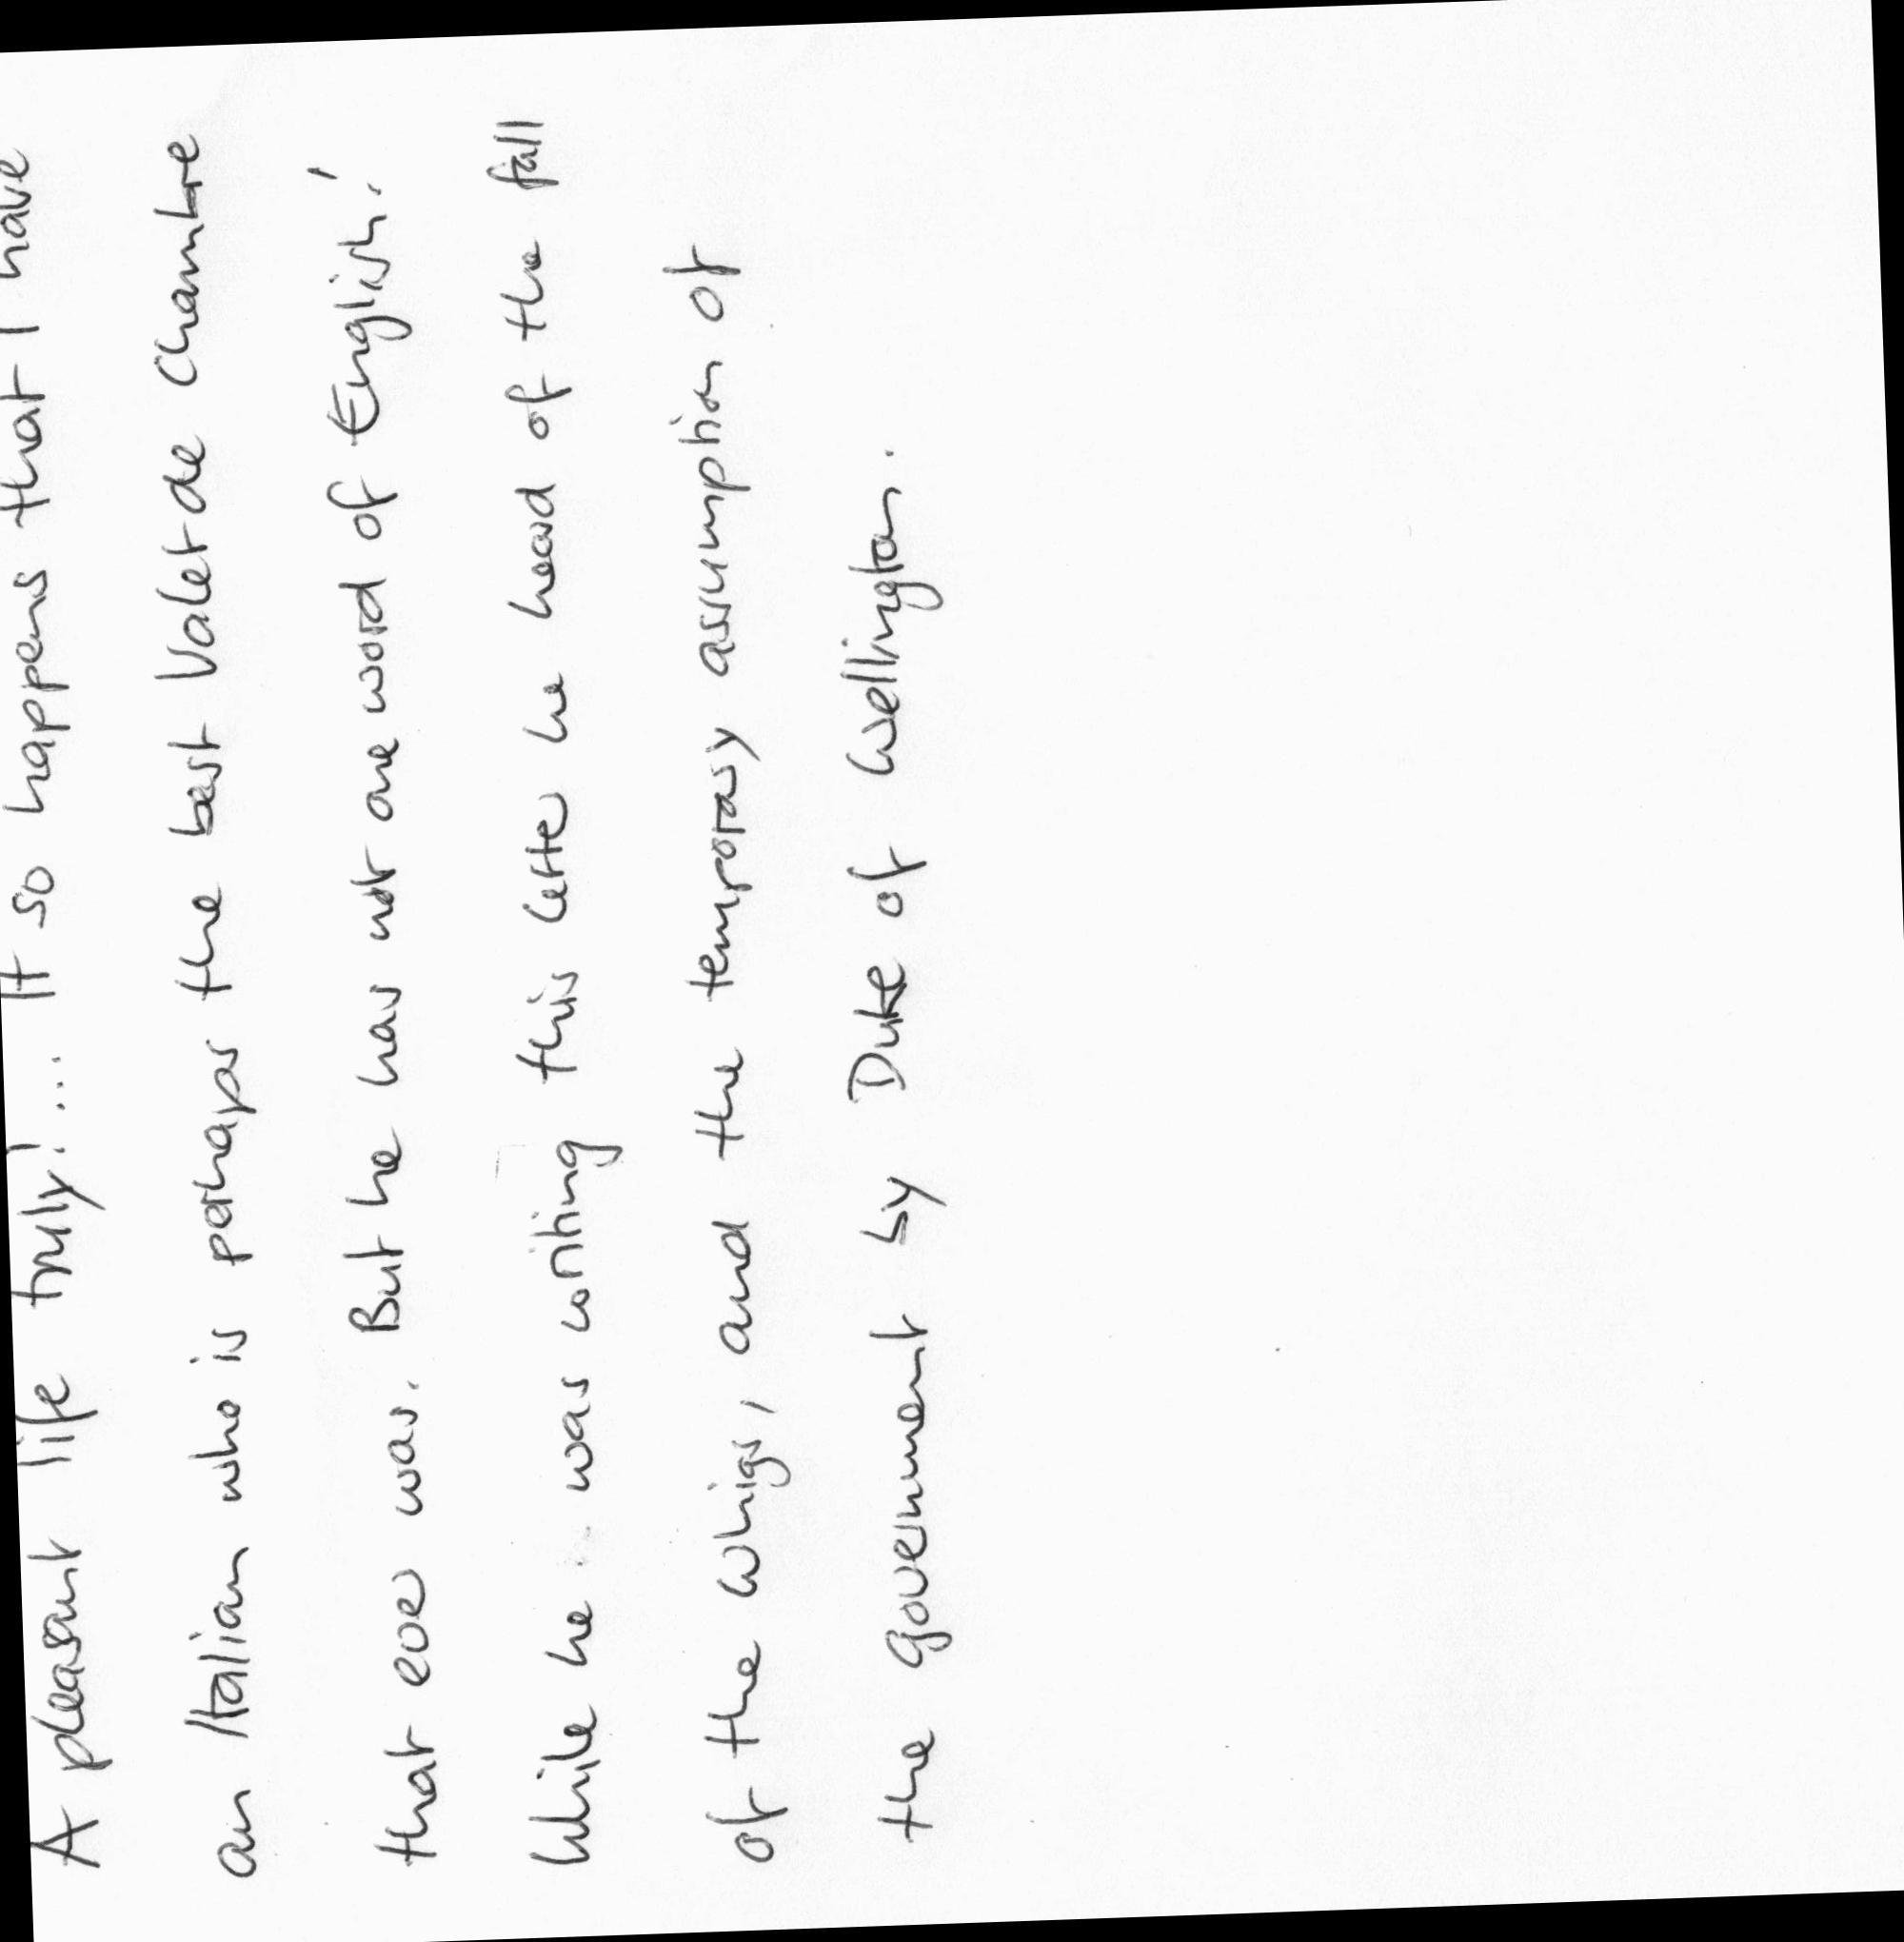 A pleasant life truly!... It so happens that I have
an Italian who is perhaps the best Valet de Chambre
that ever was. But he has not one word of English!
While he was writing this letter he heard of the fall
of the Whigs, and the temporary assumption of
the Government by Duke of Wellington.